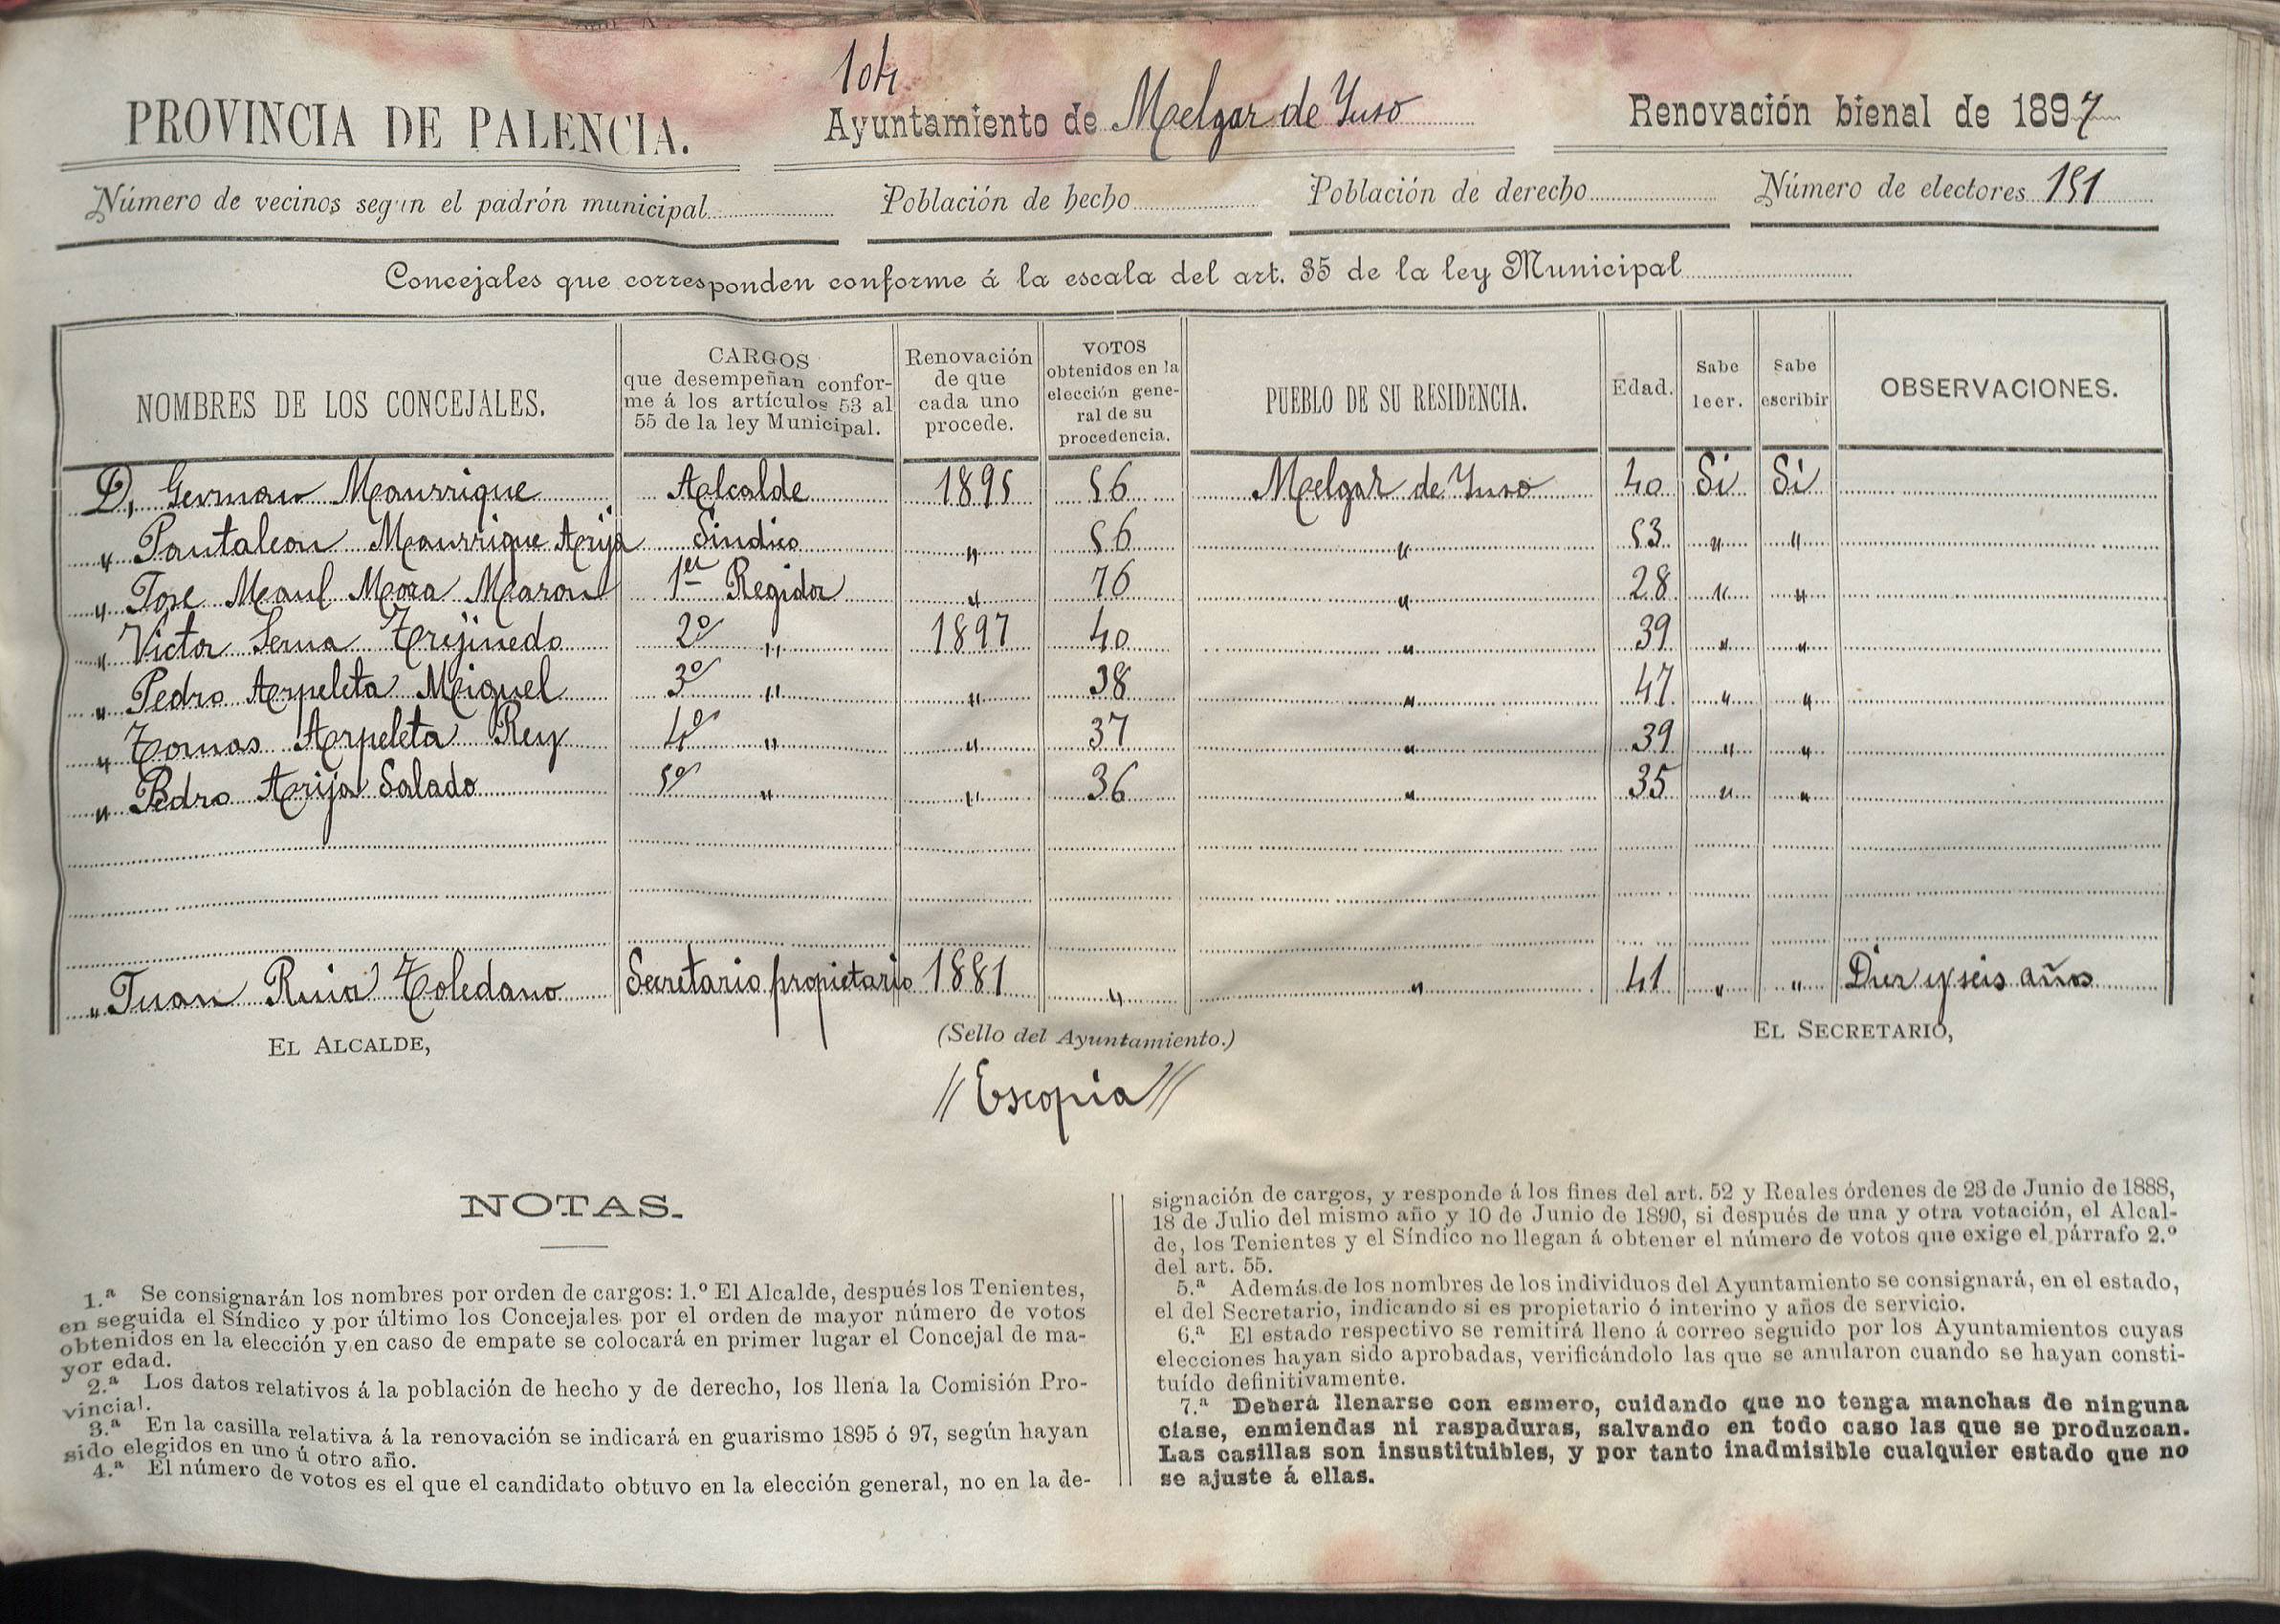 104
PROVINCIA DE PALENCIA. Ayuntamiento de Melgar de Yuso Renovación bienal de 1897
Número de vecinos según el padrón municipal Población de hecho Población de derecho Número de electores 151
Concejales que corresponden conforme á la escala del art. 35 de la ley Municipal
NOMBRES DE LOS CONCEJALES. CARGOS que desempeñan conforme á los artículos 53 al 55 de la ley Municipal. Renovación de que cada uno procede. VOTOS obtenidos en la elección general de su procedencia. PUEBLO DE SU RESIDENCIA. Edad. Sabe leer. Sabe escribir OBSERVACIONES.
D. German Manrrique Alcalde 1895 56 Melgar de Yuso 40 Si Si
" Pantaleon Manrrique Arija Sindico " 56 " 53 " "
" Jose Manl Mora Maron 1er Regidor " 76 " 28 " "
" Victor Serna Trejinedo 2º " 1897 40 " 39 " "
" Pedro Arpeleta Miguel 3º " " 38 " 47 " "
" Tomas Arpeleta Rey 4º " " 37 " 39 " "
" Pedro Arija Salado 5º " " 36 " 35 " "
" Juan Ruia Toledano Secretario propietario 1881 " " 41 " " Diez y seis años
EL ALCALDE, (Sello del Ayuntamiento.) EL SECRETARIO,
// Escopia //
NOTAS.
1.ª Se consignarán los nombres por orden de cargos: 1.º El Alcalde, después los Tenientes,
en seguida el Síndico y por último los Concejales por el orden de mayor número de votos
obtenidos en la elección y en caso de empate se colocará en primer lugar el Concejal de ma-
yor edad.
2.ª Los datos relativos á la población de hecho y de derecho, los llena la Comisión Pro-
vincial.
3.ª En la casilla relativa á la renovación se indicará en guarismo 1895 ó 97, según hayan
sido elegidos en uno ú otro año.
4.ª El número de votos es el que el candidato obtuvo en la elección general, no en la de-
signación de cargos, y responde á los fines del art. 52 y Reales órdenes de 23 de Junio de 1888,
18 de Julio del mismo año y 10 de Junio de 1890, si después de una y otra votación, el Alcal-
de, los Tenientes y el Síndico no llegan á obtener el número de votos que exige el párrafo 2.º
del art. 55.
5.ª Además de los nombres de los individuos del Ayuntamiento se consignará, en el estado,
el del Secretario, indicando si es propietario ó interino y años de servicio.
6.ª El estado respectivo se remitirá lleno á correo seguido por los Ayuntamientos cuyas
elecciones hayan sido aprobadas, verificándolo las que se anularon cuando se hayan consti-
tuído definitivamente.
7.ª Deberá llenarse con esmero, cuidando que no tenga manchas de ninguna
clase, enmiendas ni raspaduras, salvando en todo caso las que se produzcan.
Las casillas son insustituibles, y por tanto inadmisible cualquier estado que no
se ajuste á ellas.